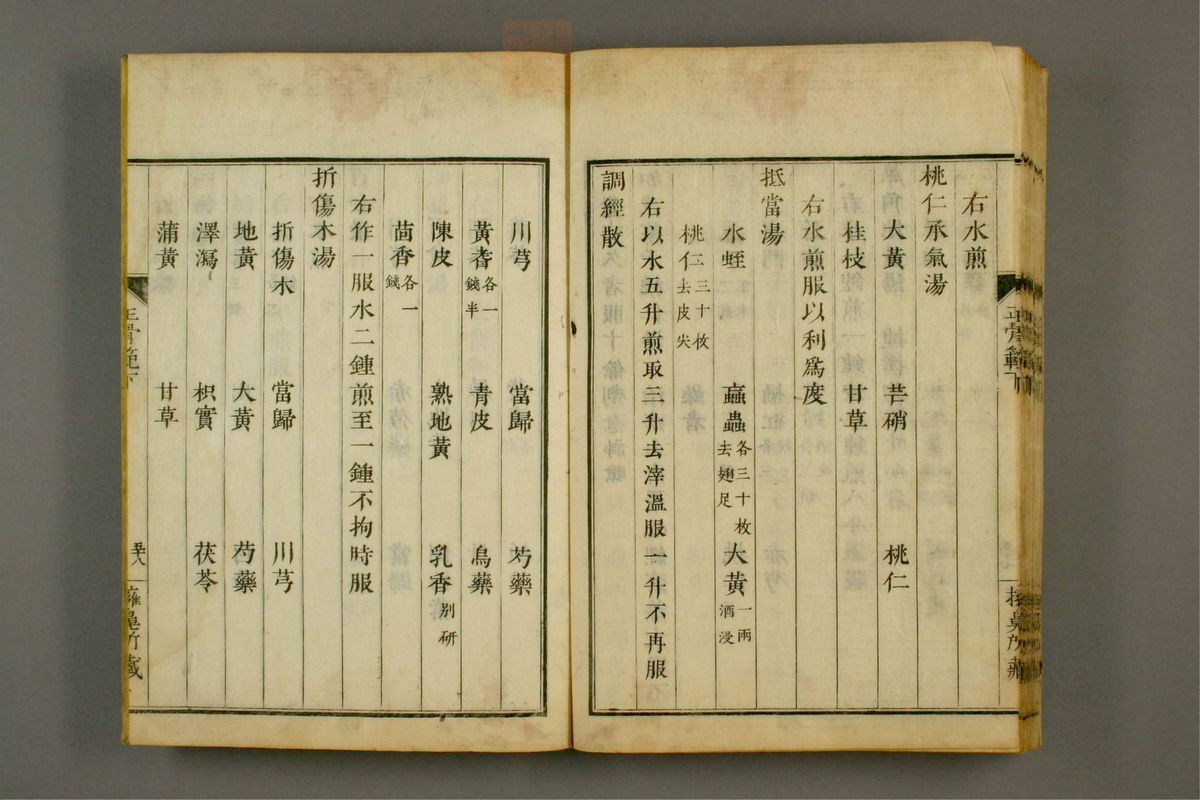 右水煎
桃仁承氣湯
大黃 芒硝 桃仁
桂枝 甘草
右水煎服以利爲度
抵當湯
水蛭 蝱蟲各三十枚去翅足 大黃一兩酒浸
桃仁三十枚去皮尖
右以水五升煎取三升去滓溫服一升不再服
調經散
川芎 當歸 芍藥
黃耆各一錢半 青皮 烏藥
陳皮 熟地黃 乳香別研
茴香各一錢
右作一服水二鍾煎至一鍾不拘時服
折傷木湯
折傷木 當歸 川芎
地黃 大黃 芍藥
澤瀉 枳實 茯苓
蒲黃 甘草
正骨範下